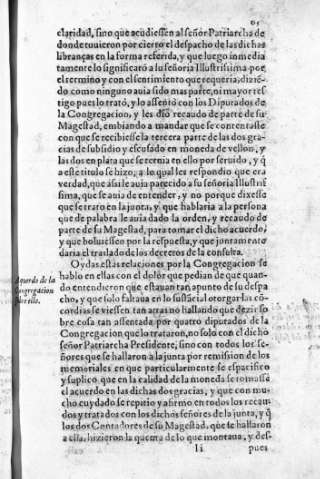 claridad, sino que acudiessen al señor Patriarcha de
donde tuuieron por cierto el despacho de las dichas
libranças en la forma referida, y que luego inmedia
tamente lo significaro a lu señoria Illustrissima por
el termino y con el sentimiento que requeria, dizié-
do como ninguno auia sido mas parte, ni mayor tes-
tigo pues lo trató, y lo assentó con los Diputados de
la Congregacion, y les dio recaudo de parte de su
Magestad, embiando a mandar que se contentasse
con que se recibiesse la tercera parte de las dos gra-
cias de subsidio y escusado en moneda de vellon, y
las dos en plata que se ternia en ello por seruido, y q̃
a este titulo se hizo, a lo qual les respondio que era
verdad, que assi le auia parecido a su señoria Illustris
sima, que se auia de entender, y no porque dixesse
que se trato en la junta, y que hablaria a la persona
que de palabra le auia dado la orden, y recaudo de
parte de su Magestad, para tomar el dicho acuerdo,
y que boluiessen por la respuesta, y que juntamente
daria el traslado de los decretos de la consulta.
Oydas estas relaciones por la Congregacion se
hablo en ellas con el dolor que pedian de que quan-
do entendieron que estauan tan apunto de su despa
cho, y que solo faltaua en lo sustácial otorgar las có-
cordias se viessen tan atras no hallando que dezir so
bre cosa tan assentada por quatro diputados de la
Congregacion que lo trataron, no solo con el dicho
señor Patriarcha Presidente, sino con todos los se-
ñores que se hallaron a la junta por remission de los
memoriales en que particularmente se especifico
y suplico que en la calidad de la moneda se tomasse
el acuerdo en las dichas dos gracias, y que con mu-
cho cuydado se repitio y afirmo en todos los recau-
dos y tratados con los dichos señores de la junta, y q̃
los dos Contadores de su Magestad, que se hallaron
a ella, hizieron la quenta de lo que montaua, y des-
Ii pues
Acuerdo de la
Congregacion
sobre ello.